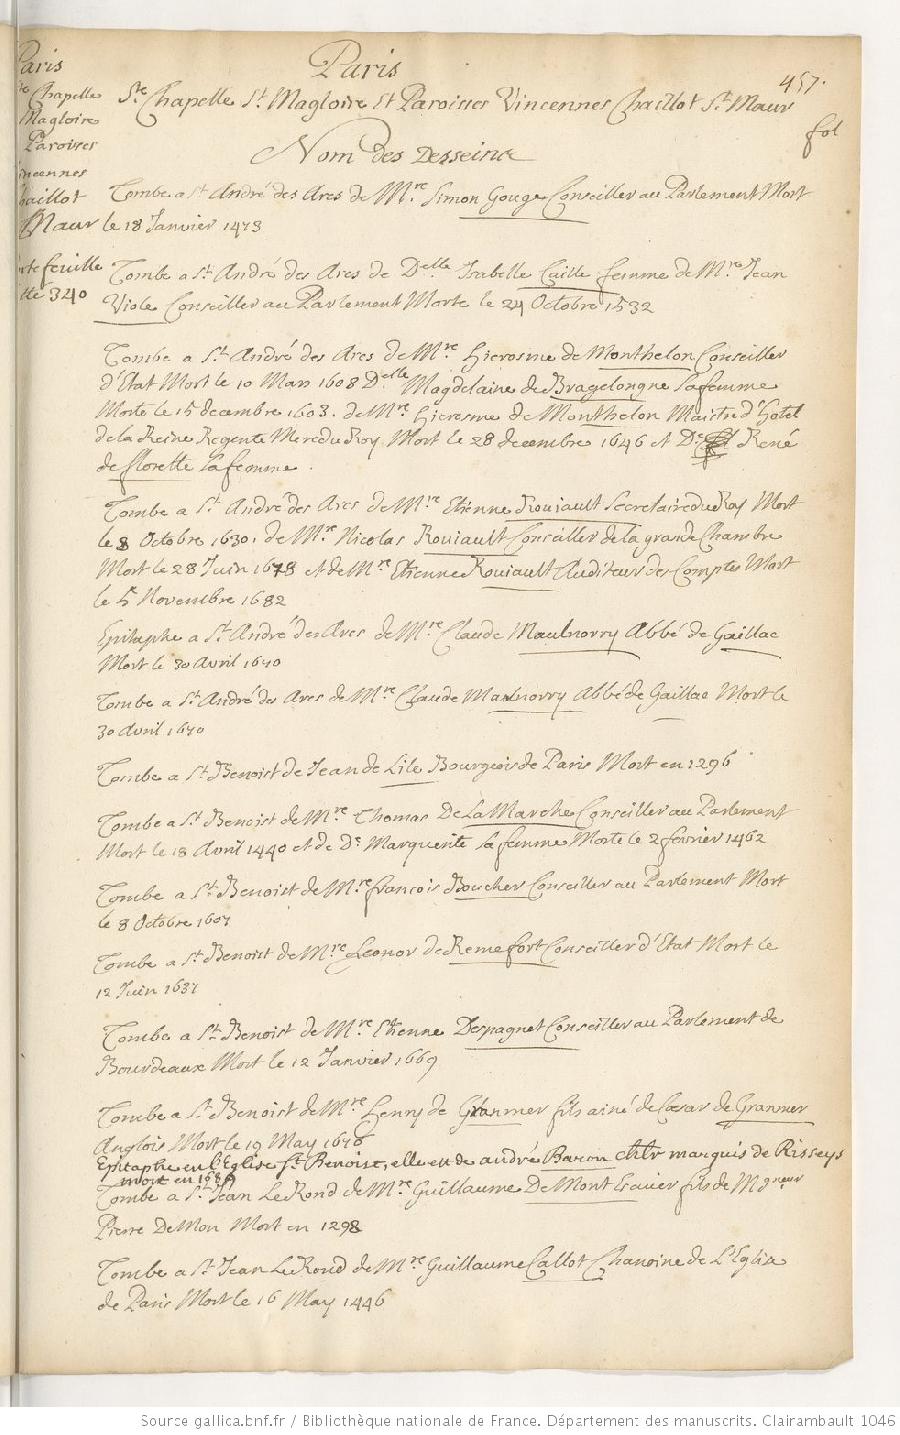 Paris
Ste Chapelle
Magloire
Paroisses
Vincennes
Chaillot
Maur
portefeuille
340
Paris
457.
Ste Chapelle St Magloire et Paroisses Vincennes Chaillot St Maur
fol
Nom des Desseins
Tombe a St André des Arcs de Mre Simon Gouge Conseiller au Parlement Mort
le 18 Janvier 1473
Tombe a St André des Arcs de Delle Isabelle Caille femme de Mre Jean
Viole Conseiller au Parlement Morte le 24 Octobre 1532
Tombe a St André des Arcs de Mre Hierosme de Monthelon Conseiller
d'Etat Mort le 10 Mars 1608 Delle Magdelaine de Bragelongne sa femme
Morte le 15 decembre 1603. de Mre Hierosme de Monthelon Maistre d'Hotel
de la Reine Regente Mere du Roy Mort le 28 decembre 1646 et De René
de florette sa femme.
Tombe a St André des Arcs de Mre Etienne Rouiault Secretaire du Roy Mort
le 8 Octobre 1630. de Mre Nicolas Rouiault Conseiller de la grande Chambre
Mort le 28 Juin 1678 et de Mre Etienne Rouiault Auditeur des Comptes Mort
le 5 Novembre 1682
Epitaphe a St André des Arcs de Mre Claude Maulnorry Abbé de Gaillac
Mort le 30 Avril 1640
Tombe a St André des Arcs de Mre Claude Maulnorry Abbé de Gaillac Mort le
30 Avril 1640
Tombe a St Benoist de Jean de Lile Bourgeois de Paris Mort en 1296
Tombe a St Benoist de Mre Thomas De La Marche Conseiller au Parlement
Mort le 18 Avril 1440 et de De Marguerite sa femme Morte le 2 février 1462
Tombe a St Benoist de Mre francois Boucher Conseiller au Parlement Mort
le 8 Octobre 1607
Tombe a St Benoist de Mre Leonor de Remefort Conseiller d'Etat Mort le
12 Juin 1637
Tombe a St Benoist de Mre Etienne Despagnet Conseiller au Parlement de
Bourdeaux Mort le 12 Janvier 1669
Tombe a St Benoist de Mre Henry de Granmer fils ainé de Cæsar de Granmer
Anglois Mort le 19 May 1676
Epitaphe en l'Eglise St Benoist, elle en de andré Baron chlr marquis de Risseys
mort en
Tombe a St Jean Le Rond de Mre Guillaume De Mont Travier fils de Mgneur
Pierre De Mon Mort en 1298
Tombe a St Jean Le Rond de Mre Guillaume Callot Chanoine de L'Eglise
de Paris Mort le 16 May 1446
Source gallica.bnf.fr / Bibliothèque nationale de France. Département des manuscrits. Clairambault 1046